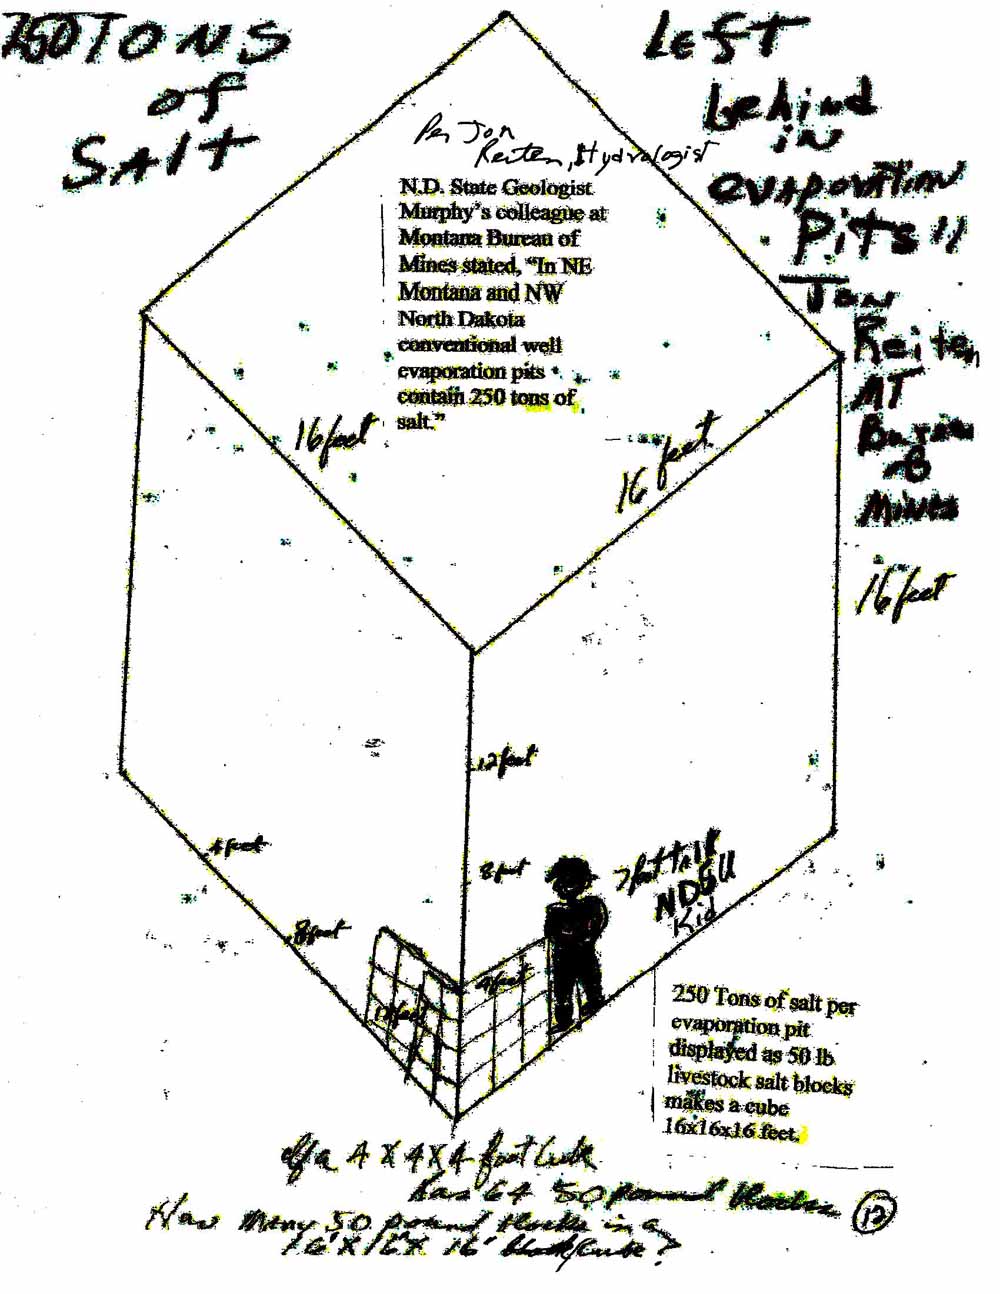 250 TONS
of
SALT
Left
behind
in
evaporation
Pits!!
Jon
Reiten
MT
Bureau
of
Mines
Per Jon
Reiten, Hydrologist
N.D. State Geologist
Murphy's colleague at
Montana Bureau of
Mines stated, “In NE
Montana and NW
North Dakota
conventional well
evaporation pits
contain 250 tons of
salt.”
16 feet
16 feet
16 feet
12 feet
8 feet
4 feet
4 feet
8 feet
12 feet
7 foot tall
NDSU
Kid
250 Tons of salt per
evaporation pit
displayed as 50 lb
livestock salt blocks
makes a cube
16x16x16 feet.
If a 4 X 4 X 4 foot Cube
has 64 50 pound blocks
How many 50 pound blocks in a
16' X 16' X 16' block/cube?
12